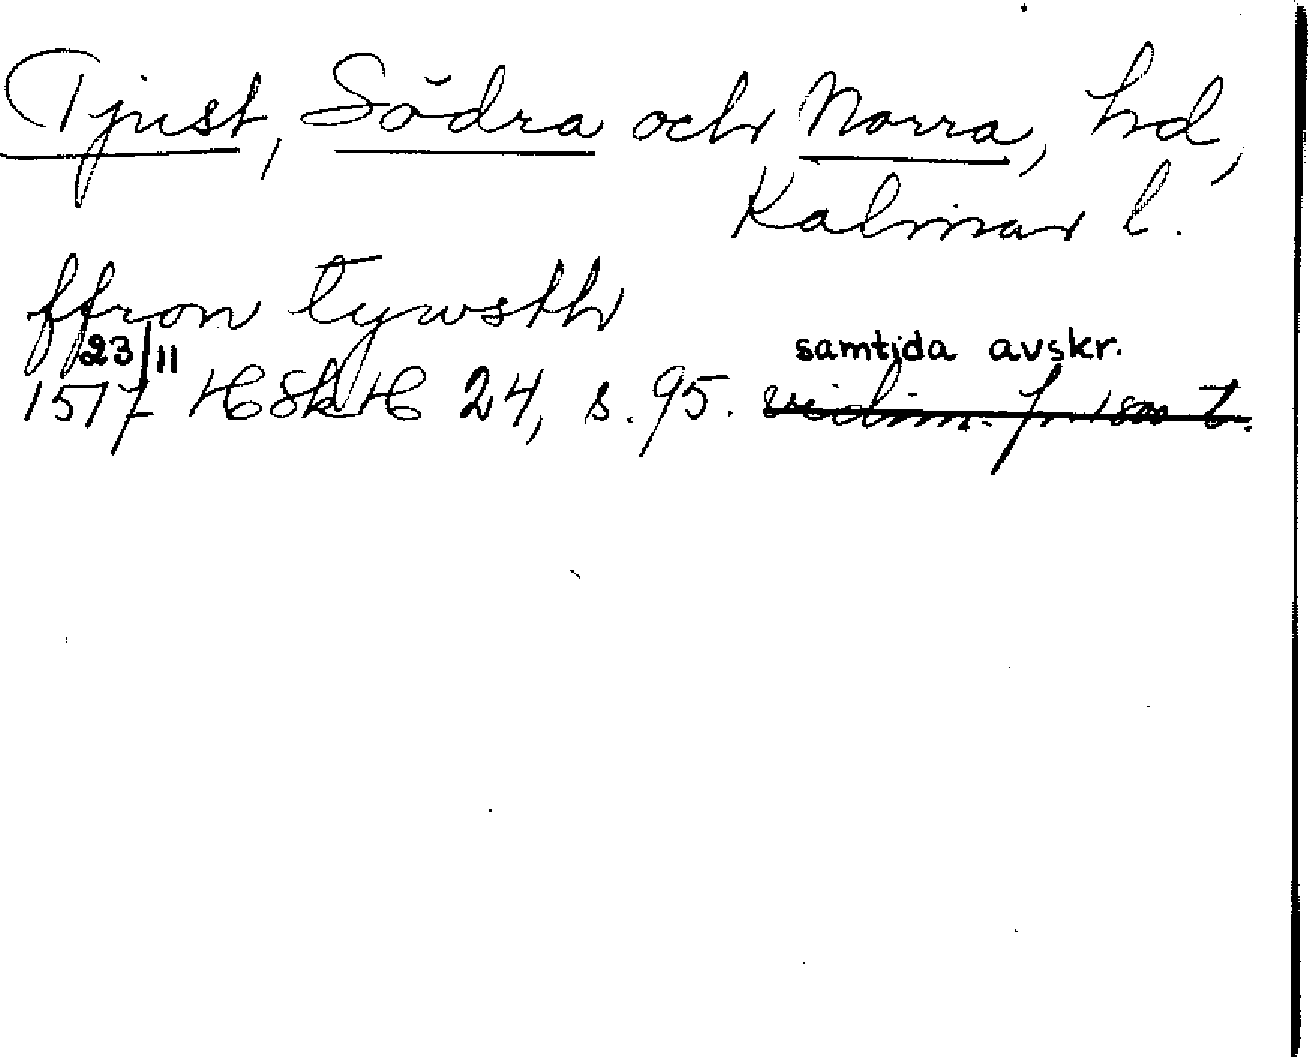 Tjust, Södra och Norra, hd,
Kalmar l.
ffron tywsth
23/11 samtida avskr.
1517 HSkH 24, s. 95. vidim. fr